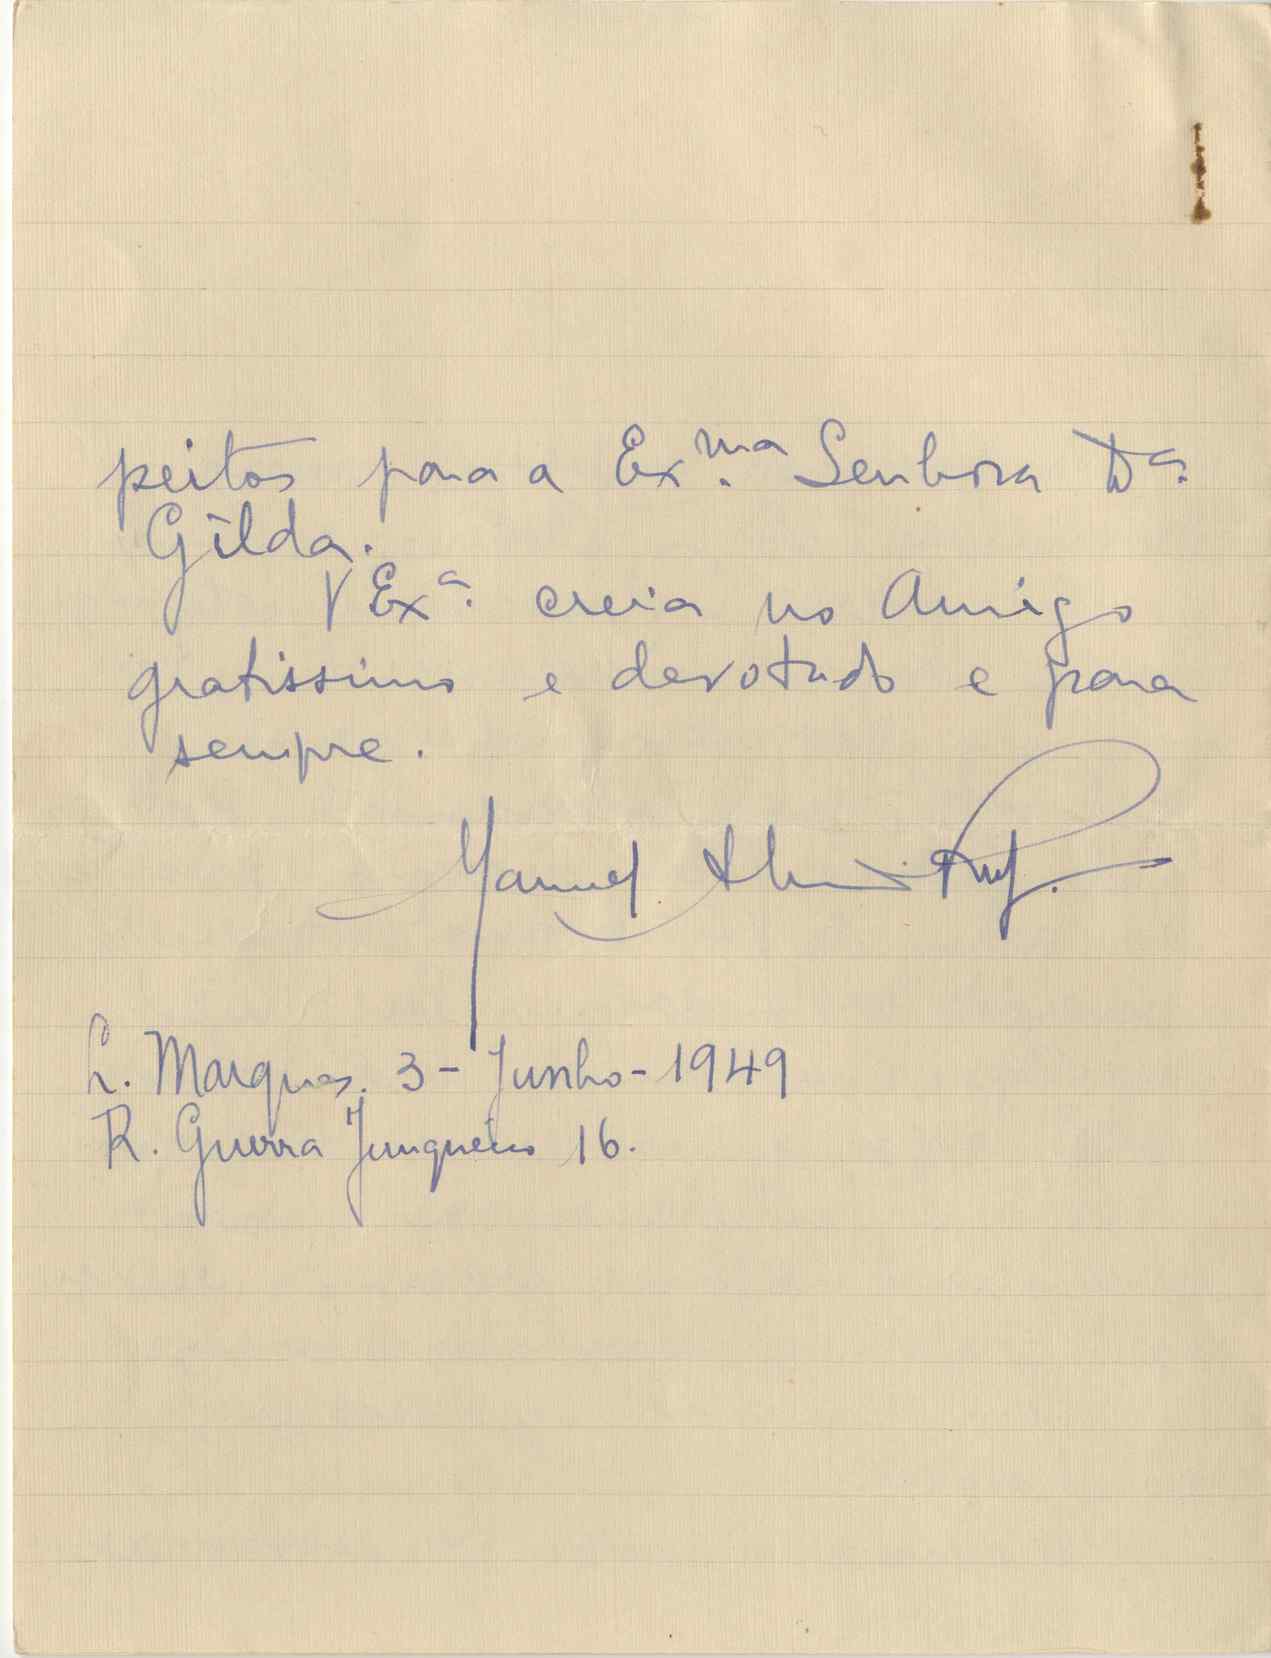 peitos para a Ex.ma Senhora D.a
Gilda.
V Ex.a creia no Amigo
gratissimo e devotado e para
sempre.
Manuel
L. Marques. 3 - Junho - 1949
R. Guerra Junqueiro 16.